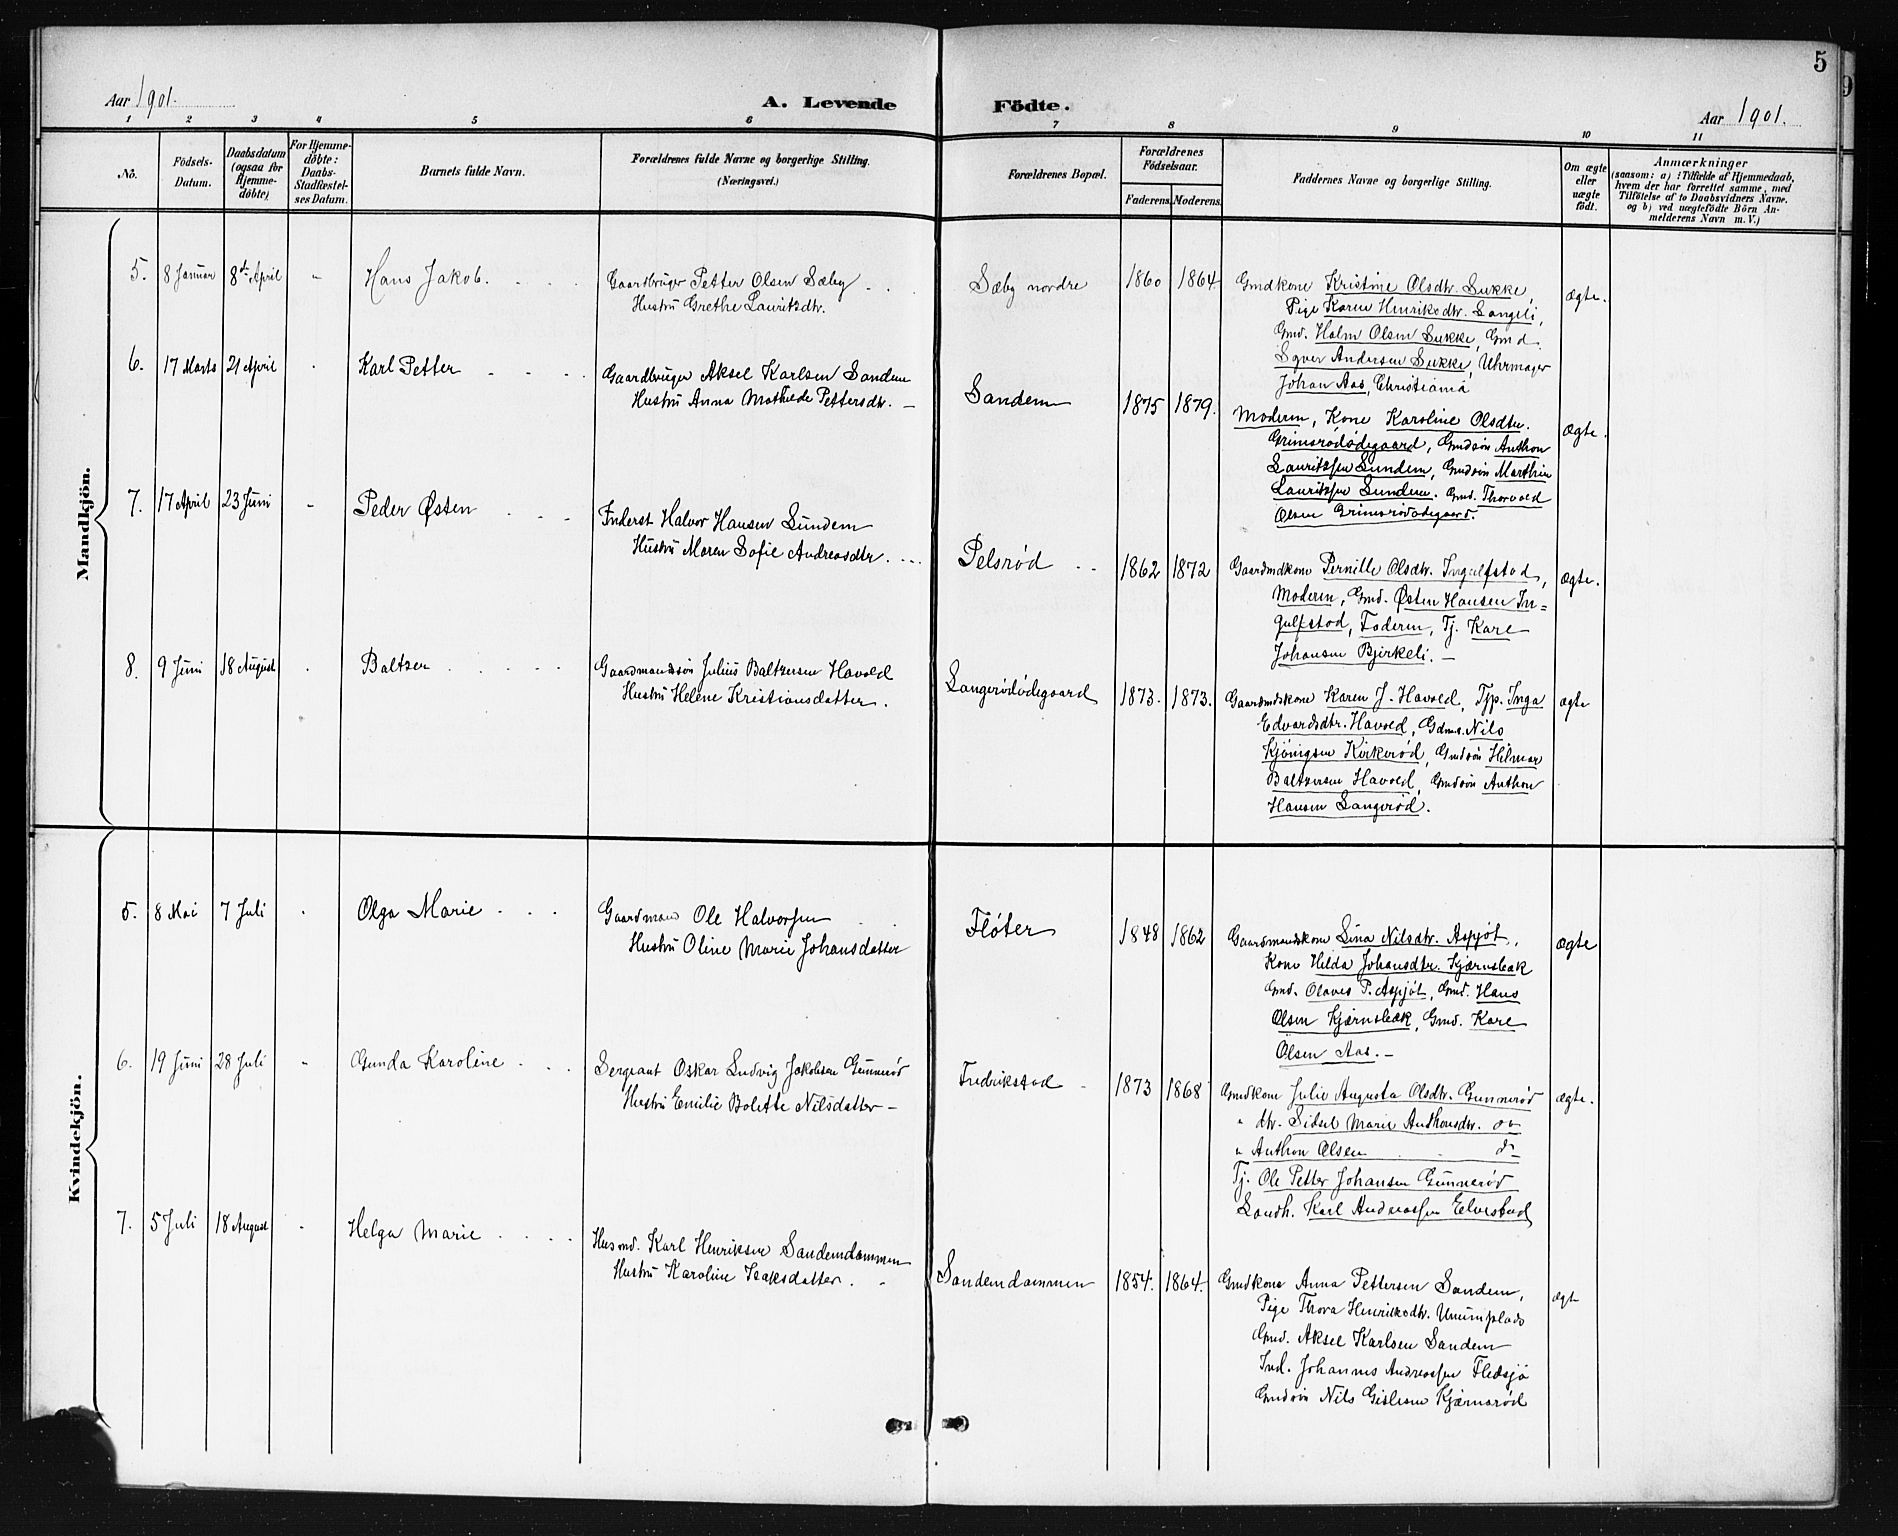 5
9
Aar 1901.
A. Levende
Födte.
Aar 1901.
1 2 3 4 5 6 7 8 9 10 11
No.
Födsels-
Datum.
Daabsdatum
(ogsaa for
Hjemme-
döbte)
For Hjemme-
döbte:
Daabs-
Stadfæstel-
ses Datum.
Barnets fulde Navn.
Forældrenes fulde Navne og borgerlige Stilling.
(Næringsvei.)
Forældrenes Bopæl.
Forældrenes
Födselsaar.
Faderens. Moderens.
Faddernes Navne og borgerlige Stilling.
Om ægte
eller
uægte
födt.
Anmærkninger
(saasom: a) i Tilfælde af Hjemmedaab,
hvem der har forrettet samme, med
Tilföielse af to Daabsvidners Navne.
og b) ved uægtefödte Börn An-
melderens Navn m. V.)
Mandkjön.
5. 8 Januar 8de April " Hans Jakob.
Gaardbruger Petter Olsen Sæby
Hustru Grethe Lauritsdtr.
Sæby nordre
1860 1864.
Gmdkone Kristine Olsdtr. Sukke,
Pige Karen Henriksdtr. Sangeli,
Gmd. Halm Olsen Sukke, Gmd.
Syver Andersen Sukke, Uhrmager
Johan Aas, Christiania
ægte.
6. 17 Marts 21 April " Karl Petter
Gaardbruger Aksel Karlsen Sandem
Hustru Anna Mathilde Pettersdtr. —
Sandem
1875 1879.
Moderen, Kone Karoline Olsdtr.
Grimsrødødegaard, Gmdsøn Anthon
Lauritssen Sundem, Gmdsøn Marthin
Lauritssen Sundem. Gmd. Thorvald
Olsen Grimsrødødegaard.
ægte.
7. 17 April 23 Juni " Peder Østen
Inderst Halvor Hansen Sundem
Hustru Maren Sofie Andreasdtr.
Pelsrød
1862 1872
Gaardmdkone Pernille Olsdtr. Ingulfstad,
Moderen, Gmd. Østen Hansen In=
gulfstad, Faderen, Tj. Karl
Johansen Bjerkeli. —
ægte.
8. 9 Juni 18 August . Baltzer
Gaardmandssøn Julius Baltzersen Havold
Hustru Helene Kristiansdatter.
Langerødødegaard
1873. 1873.
Gaardmdskone Karen J. Havold, Tjp. Inga
Edvardsdtr. Havold, Gdms. Nils
Kjönigsen Kirkerød, Gmdsön Hilmar
Baltzersen Havold, Gmdsön Anthon
Hansen Langerød.
ægte
Kvindekjön.
5. 8 Mai 7 Juli . Olga Marie
Gaardmand Ole Halvorsen
Hustru Oline Marie Johansdatter
Fløter
1848 1862
Gaardmandskone Lina Nilsdtr. Aspjøt,
Kone Hilda Johansdtr. Kjærnsbæk
Gmd. Olaves P. Aspjøt, Gmd. Hans
Olsen Kjærnsbæk, Gmd. Karl
Olsen Aas. —
ægte
6. 19 Juni 28 Juli " Gunda Karoline
Sergeant Oskar Ludvig Jakobsen Gunnerød
Hustru Emilie Bolette Nilsdatter —
Fredrikstad
1873 1868
Gmdkone Julie Augusta Olsdtr. Gunnerød
" dtr. Sidsel Marie Anthonsdtr. do
" Anthon Olsen do
Tj. Ole Petter Johansen Gunnerød
Landh. Karl Andreassen Elvestad
ægte.
7. 5 Juli 18 August " Helga Marie
Husmd. Karl Henriksen Sandemdammen
Hustru Karoline Isaksdatter.
Sandemdammen
1854. 1864.
Gmdkone Anna Pettersen Sandem,
Pige Thora Henriksdtr.
Gmd. Aksel Karlsen Sandem
Ind. Johannes Andreassen Fledsjø
Gmdsön Nils Gislesen Kjærnsrød
ægt